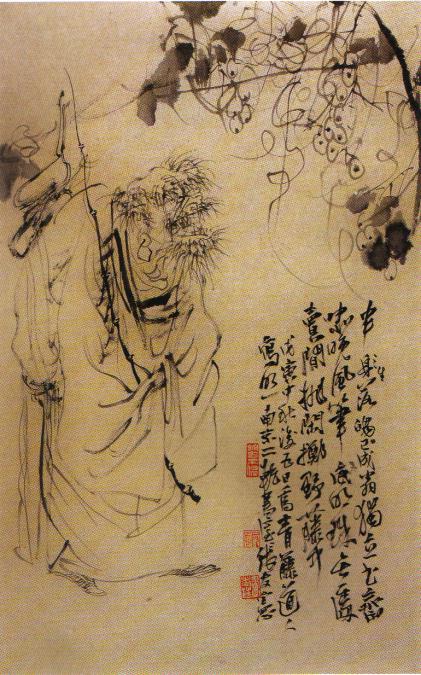 半生落魄已成翁獨立書齋
嘯晚風筆底明珠無處
賣閒拋閒擲野藤中
戊寅中秋後五日寫青藤道人
南京 張友憲